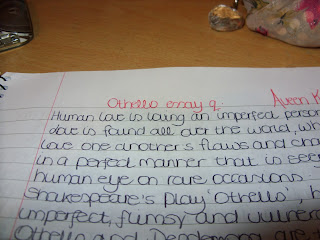 Othello essay q. 
Human love is loving an imperfect person
love is found all over the world, wh
love one another's flaws and cha
in a perfect manner that is see
human eye on rare occasions.
Shakespeare's play 'Othello', h
imperfect, flimsy and vulnera
Othello and Desdemona are